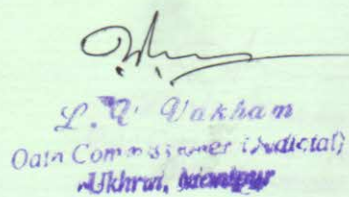 L. Vakham
Oath Commissioner (Judicial)
Ukhrul, Manipur